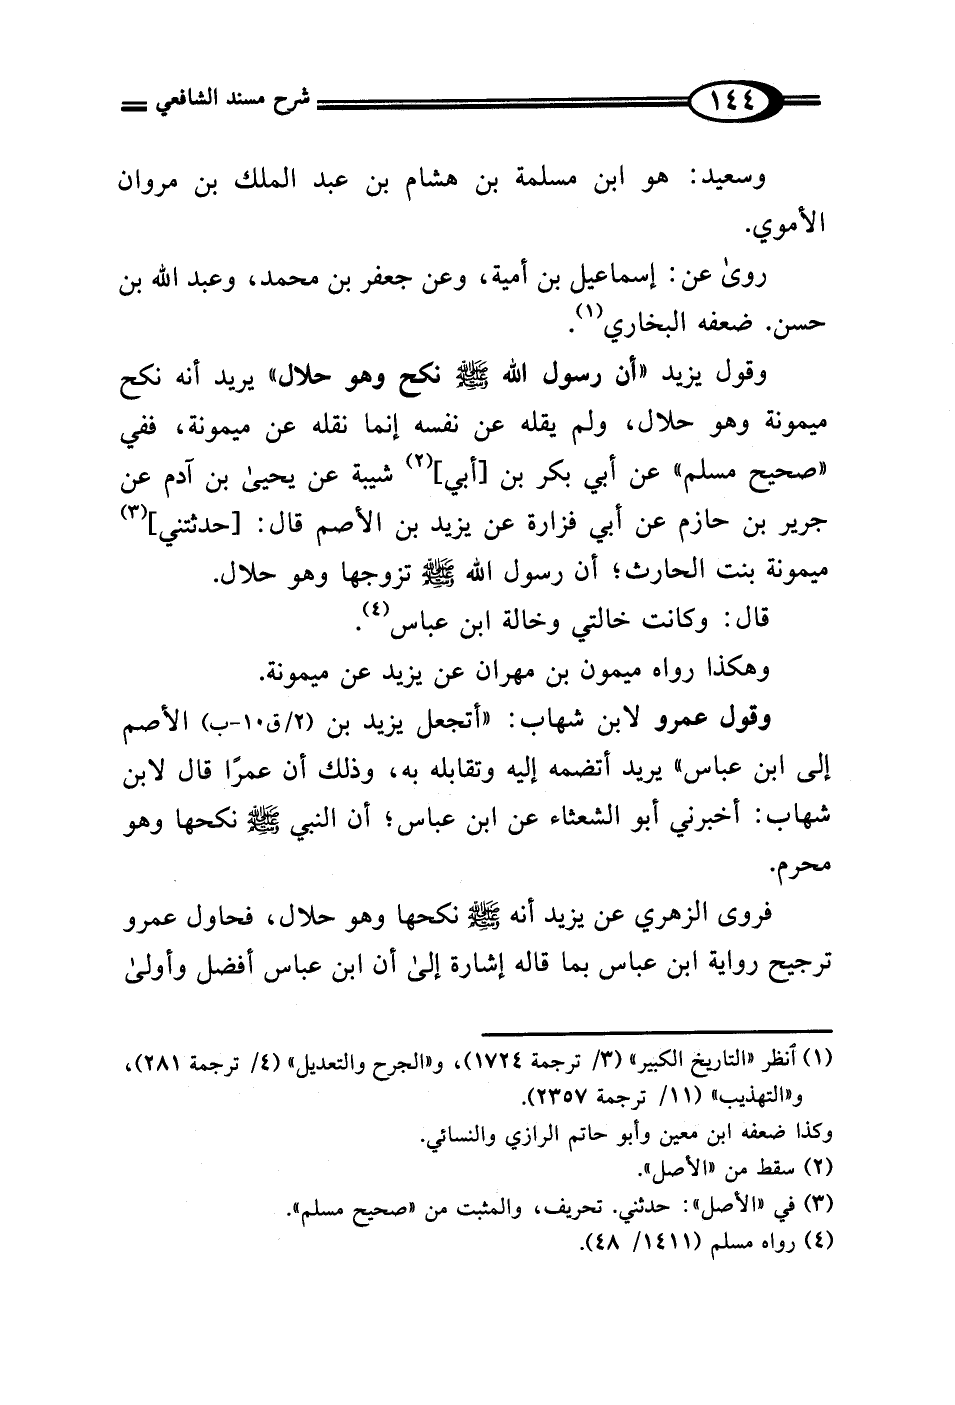 ١٤٤ شرح مسند الشافعي
وسعيد: هو ابن مسلمة بن هشام بن عبد الملك بن مروان
الأموي.
روىٰ عن: إسماعيل بن أمية، وعن جعفر بن محمد، وعبد الله بن
حسن. ضعفه البخاري(١).
وقول يزيد «أن رسول الله ﷺ نكح وهو حلال» يريد أنه نكح
ميمونة وهو حلال، ولم يقله عن نفسه إنما نقله عن ميمونة، ففي
«صحيح مسلم» عن أبي بكر بن [أبي](٢) شيبة عن يحيىٰ بن آدم عن
جرير بن حازم عن أبي فزارة عن يزيد بن الأصم قال: [حدثتني](٣)
ميمونة بنت الحارث؛ أن رسول الله ﷺ تزوجها وهو حلال.
قال: وكانت خالتي وخالة ابن عباس(٤).
وهكذا رواه ميمون بن مهران عن يزيد عن ميمونة.
وقول عمرو لابن شهاب: «أتجعل يزيد بن (٢/ق١٠-ب) الأصم
إلى ابن عباس» يريد أتضمه إليه وتقابله به، وذلك أن عمرًا قال لابن
شهاب: أخبرني أبو الشعثاء عن ابن عباس؛ أن النبي ﷺ نكحها وهو
محرم.
فروى الزهري عن يزيد أنه ﷺ نكحها وهو حلال، فحاول عمرو
ترجيح رواية ابن عباس بما قاله إشارة إلىٰ أن ابن عباس أفضل وأولىٰ
(١) ٱنظر «التاريخ الكبير» (٣/ ترجمة ١٧٢٤)، و«الجرح والتعديل» (٤/ ترجمة ٢٨١)،
و«التهذيب» (١١/ ترجمة ٢٣٥٧).
وكذا ضعفه ابن معين وأبو حاتم الرازي والنسائي.
(٢) سقط من «الأصل».
(٣) في «الأصل»: حدثني. تحريف، والمثبت من «صحيح مسلم».
(٤) رواه مسلم (١٤١١/ ٤٨).